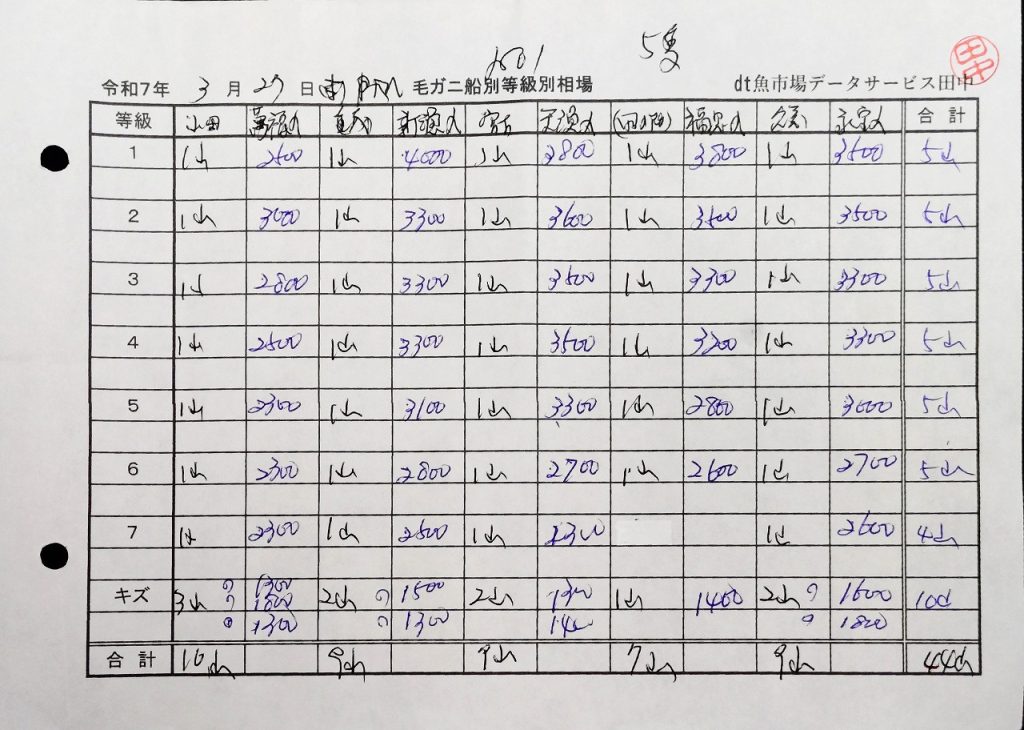 5隻
令和7年 3月27日 毛ガニ船別等級別相場 dt魚市場データサービス田中
田中
等級 合計
1 1山 2500 1山 4000 1山 2800 1山 3800 1山 3500 5山
2 1山 3000 1山 3300 1山 3600 1山 3500 1山 3500 5山
3 1山 2800 1山 3300 1山 3500 1山 3300 1山 3300 5山
4 1山 2500 1山 3300 1山 3500 1山 3200 1山 3300 5山
5 1山 2300 1山 3100 1山 3300 1山 2800 1山 3000 5山
6 1山 2300 1山 2800 1山 2700 1山 2600 1山 2700 5山
7 1山 2300 1山 2500 1山 2300 1山 2600 4山
キズ 3山 1300 2山 1500 2山 1300 1山 1400 2山 1600 10山
1300 1300 1400 1800
合計 10山 9山 9山 7山 9山 44山